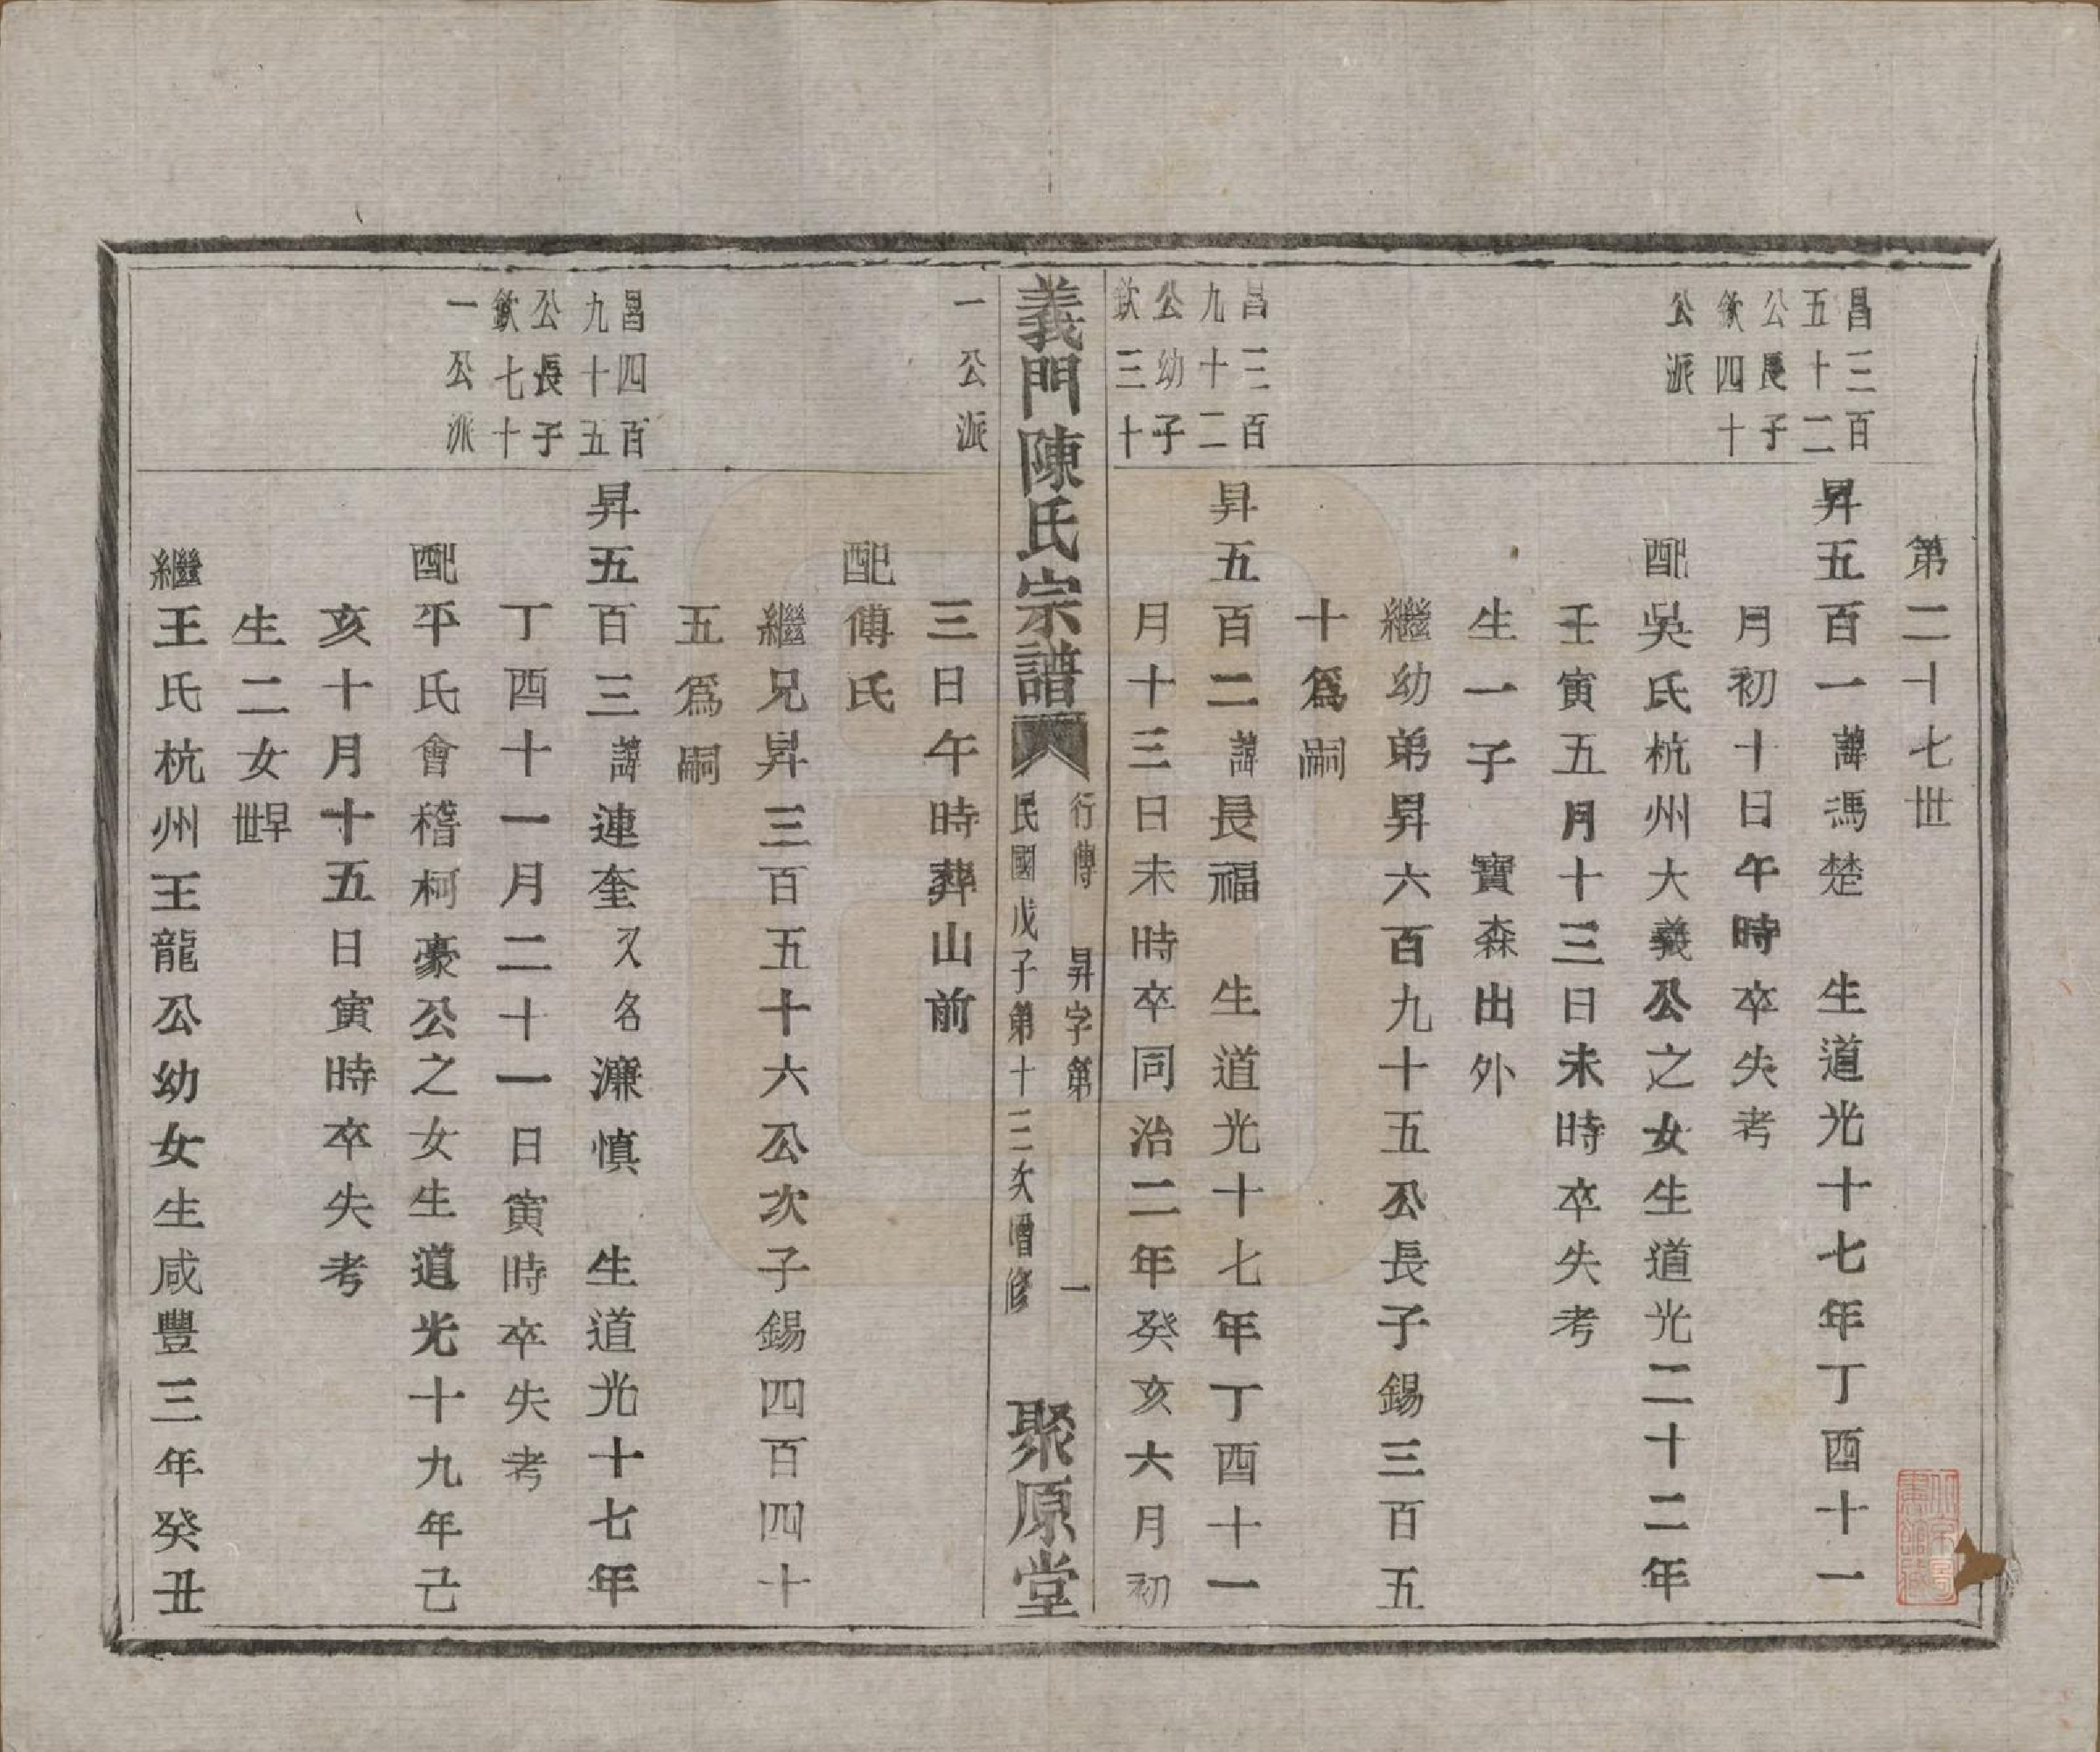 第二十七世
昌三百
五十二
公長子
欽四十
公派
昇五百一諱馮楚　生道光十七年丁酉十一
月初十日午時卒失考
配吳氏杭州大義公之女生道光二十二年
壬寅五月十三日未時卒失考
生一子　寶森出外
繼幼弟昇六百九十五公長子錫三百五
十爲嗣
昌三百
九十二
公幼子
欽三十
昇五百二諱長福　生道光十七年丁酉十一
月十三日未時卒同治二年癸亥六月初
義門陳氏宗譜
行傳　昇字第　一
民國戊子第十三次增修
聚原堂
一公派
三日午時葬山前
配傅氏
繼兄昇三百五十六公次子錫四百四十
五爲嗣
昌四百
九十五
公長子
欽七十
一公派
昇五百三諱連奎又名濂慎　生道光十七年
丁酉十一月二十一日寅時卒失考
配平氏會稽柯豪公之女生道光十九年己
亥十月十五日寅時卒失考
生二女早世
繼王氏杭州王龍公幼女生咸豐三年癸丑